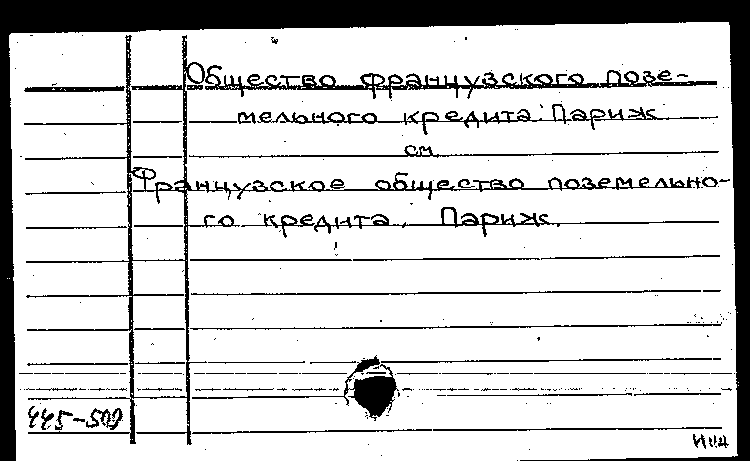 Общество французского позе-
мельного кредита. Париж
см.
Французское общество поземельно-
го кредита. Париж.
445-500